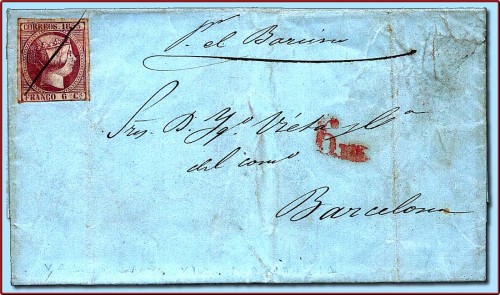 CORREOS. 185
FRANCO 6 Cs
Pr. el Barcino
Sres. D. Ygo. Vieta y Ca
del como
6 RS
Barcelona